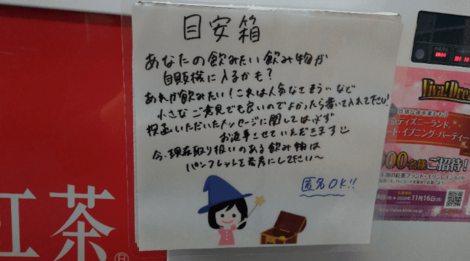 目安箱
あなたの飲みたい飲み物が
自販機に入るかも?
あれが飲みたい!これは人気なさそう…など
小さなご意見でも良いのでよかったら書いて入れて下さい!
投函いただいたメッセージに関しては必ず
お返事させていただきます
今、現在取り扱いのある飲み物は
パンフレットを参考にして下さい〜
匿名OK!!
紅茶
Viva!Dre
ディズニーランド
ート・イブニング・パーティー
00名様ご招待!
11月16日